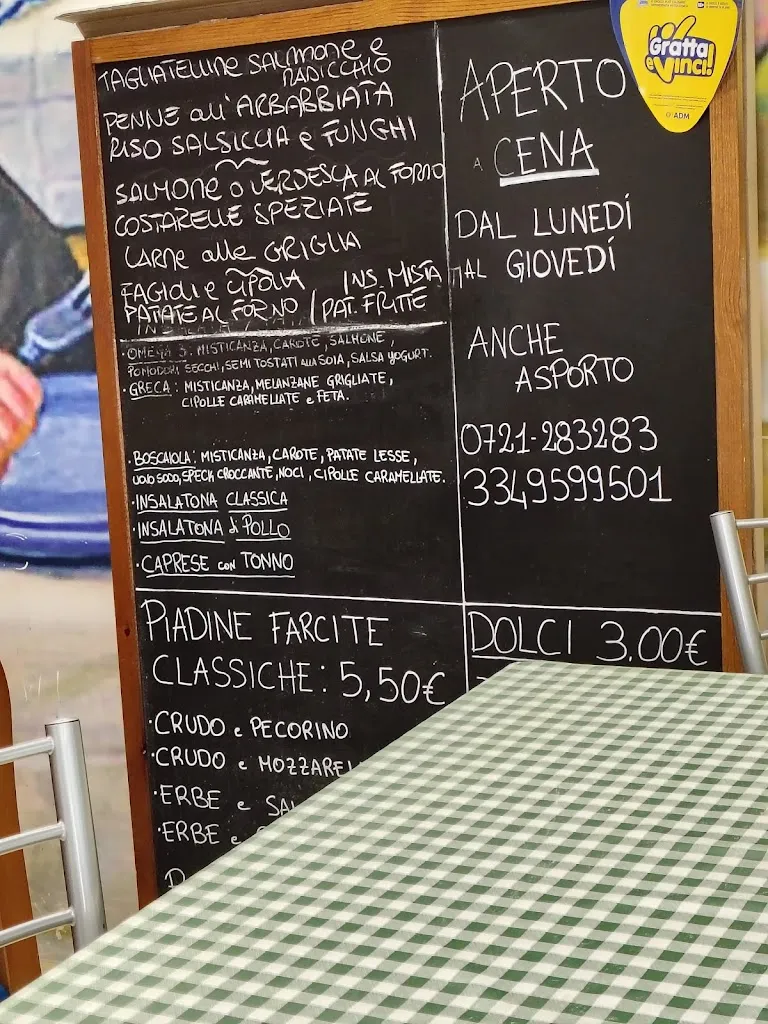 TAGLIATELLINE SALMONE e
RADICCHIO
PENNE all'ARRABBIATA
RISO SALSICCIA e FUNGHI
SALMONE o VERDESCA AL FORNO
COSTARELLE SPEZIATE
CARNE alle GRIGLIA
FAGIOLI e CIPOLLA INS. MISTA
PATATE AL FORNO / PAT. FRITTE
· OMEGA 3: MISTICANZA, CAROTE, SALMONE,
POMODORI SECCHI, SEMI TOSTATI alla SOIA, SALSA YOGURT.
· GRECA: MISTICANZA, MELANZANE GRIGLIATE,
CIPOLLE CARAMELLATE e FETA.
· BOSCAIOLA: MISTICANZA, CAROTE, PATATE LESSE,
UOVO SODO, SPECK CROCCANTE, NOCI, CIPOLLE CARAMELLATE.
· INSALATONA CLASSICA
· INSALATONA di POLLO
· CAPRESE con TONNO
PIADINE FARCITE
CLASSICHE: 5,50€
· CRUDO e PECORINO
· CRUDO e MOZZAREL
· ERBE e SAL
· ERBE e
APERTO
A CENA
DAL LUNEDÍ
AL GIOVEDÍ
ANCHE
ASPORTO
0721-283283
3349599501
DOLCI 3,00€
Gratta
e Vinci!
ADM